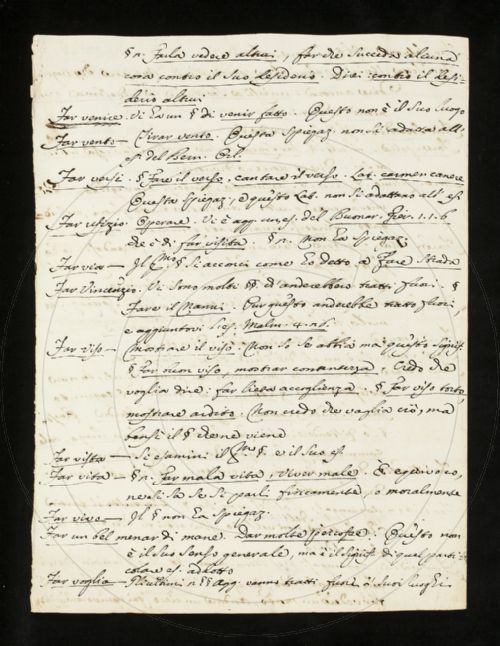 § n. Farla vedere altrui, far che succeda alcuna
cosa contro il suo desiderio. Direi: contro il desi-
derio altrui
Far venire. Vi è un § di venir fatto. Questo non è il suo luogo
Far vento — Tirar vento. Questa spiegaz. non si adatta all'
es. del Bern. Orl.
Far versi. § Fare il verso, cantare il verso. Lat. carmen canere
Questa spiegaz. e questo Lat. non si adattano all' es.
Far ufizio. Operare. Vi è agg. un es. del Buonar. Fier. 1. 1. 6
che è di far visita. § n. Non ha spiegaz.
Far via — Il § si acconci come ho detto a Fare strada
Far Vincenzio. Vi sono molti §§. ed anderebbero tratti fuori. §
Fare il Nanni. Pur questo anderebbe tratto fuori,
e aggiuntovi l'es. Malm. 4. 26.
Far viso — Mostrare il viso. Non so se abbia mai questo signif.
§ Far buon viso, mostrar contentezza, credo che
voglia dire: far lieta accoglienza. § Far viso torto,
mostrare ardito. Non credo che vaglia ciò, ma
bensì il § che ne viene
Far vista — Si esamini il § e il suo es.
Far vita — § n. Far mala vita, viver male. È equivoco,
né si sa se si parli fisicamente, o moralmente
Far vive — Il § non ha spiegaz.
Far un bel menar di mane. Dar molte percosse. Questo non
è il suo senso generale, ma è il signif. di quel parti-
colare es. addotto
Far voglia — Gli ultimi n §§ agg. vanno tratti fuori a' suoi luoghi